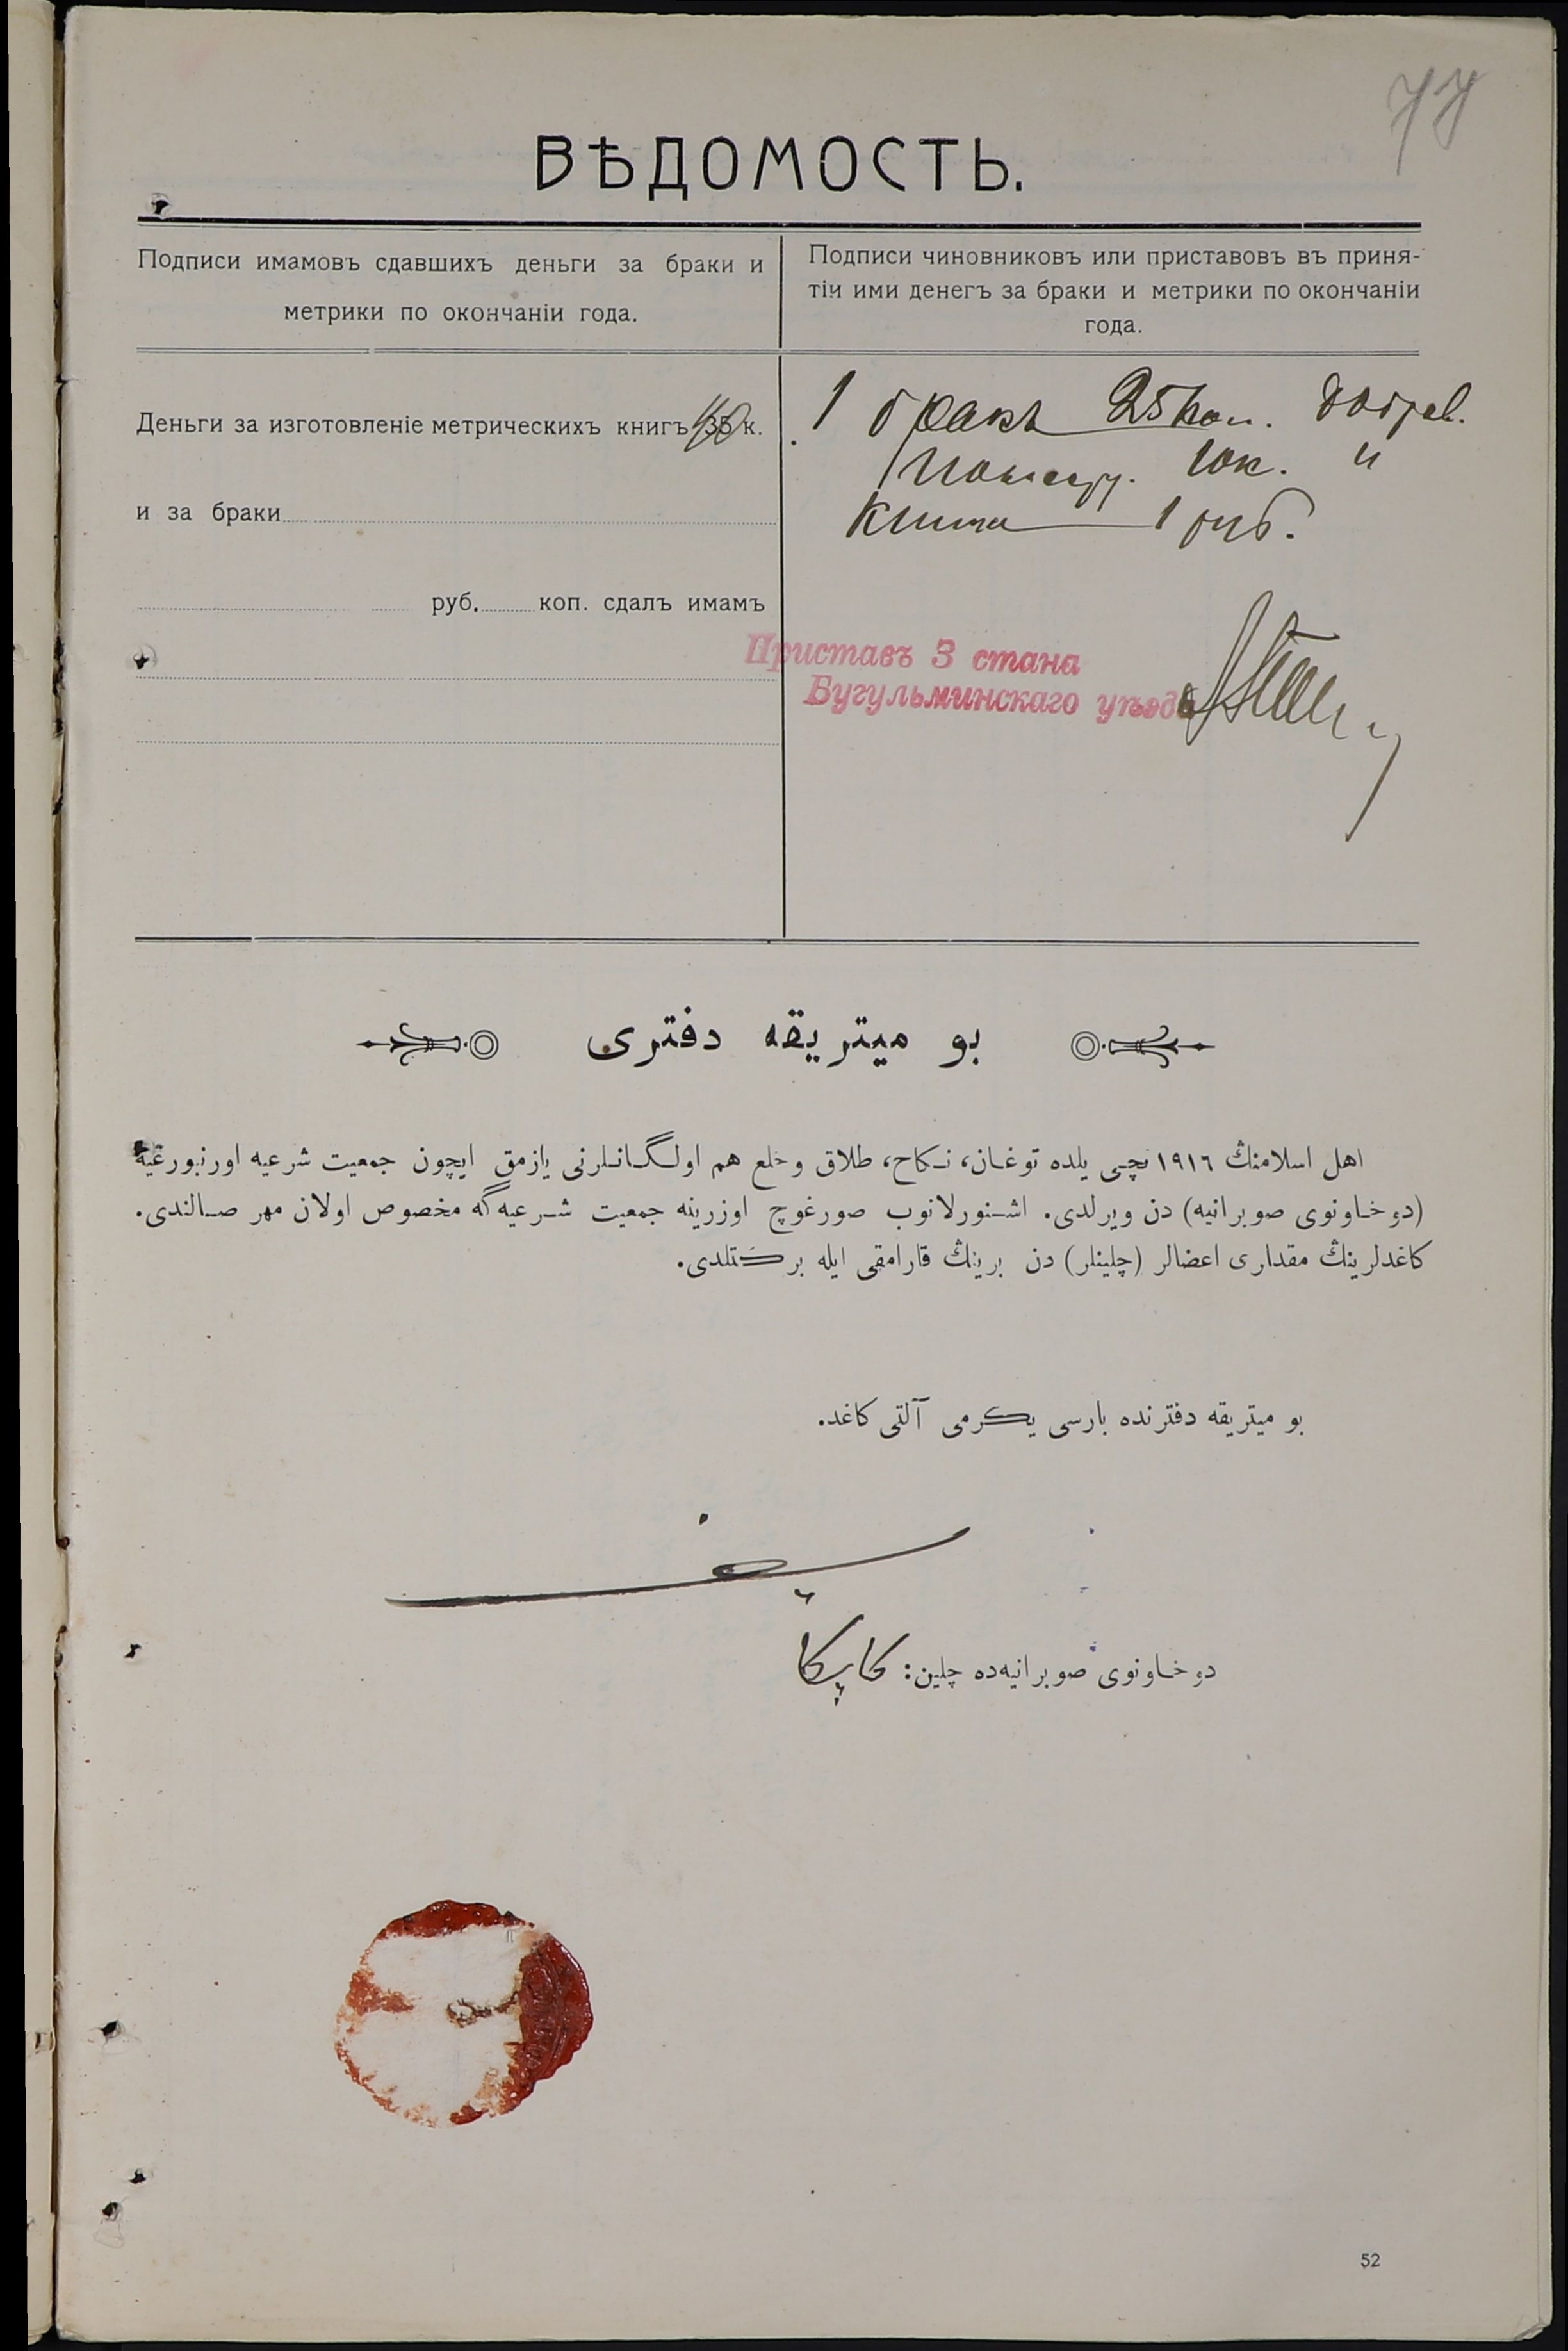 77
ВѢДОМОСТЬ.
Подписи имамовъ сдавшихъ деньги за браки и
метрики по окончаніи года.
Подписи чиновниковъ или приставовъ въ приня-
тіи ими денегъ за браки и метрики по окончаніи
года.
Деньги за изготовленіе метрическихъ книгъ 35 к.
и за браки
руб. коп. сдалъ имамъ
1 бракъ 25 коп.
10 к. "
Книга 1 руб.
Приставъ 3 стана
Бугульминскаго уѣзда
بو ميتريقه دفترى
اهل اسلامنڭ ١٩١٦ نچى يلده توغان، نكاح، طلاق وخلع هم اولگانلرنى يازمق ايچون جمعيت شرعيه اورنبورغيه
(دوخاونوى صوبرانيه) دن ويرلدى. اشنورلانوب صورغوچ اوزرينه جمعيت شرعيه‌گه مخصوص اولان مهر صالندى.
كاغدلرينڭ مقدارى اعضالر (چلينلر) دن برينڭ قارامقى ايله بركتلدى.
بو ميتريقه دفترنده بارسى يكرمى آلتى كاغد.
دوخاونوى صوبرانيه‌ده چلين:
52